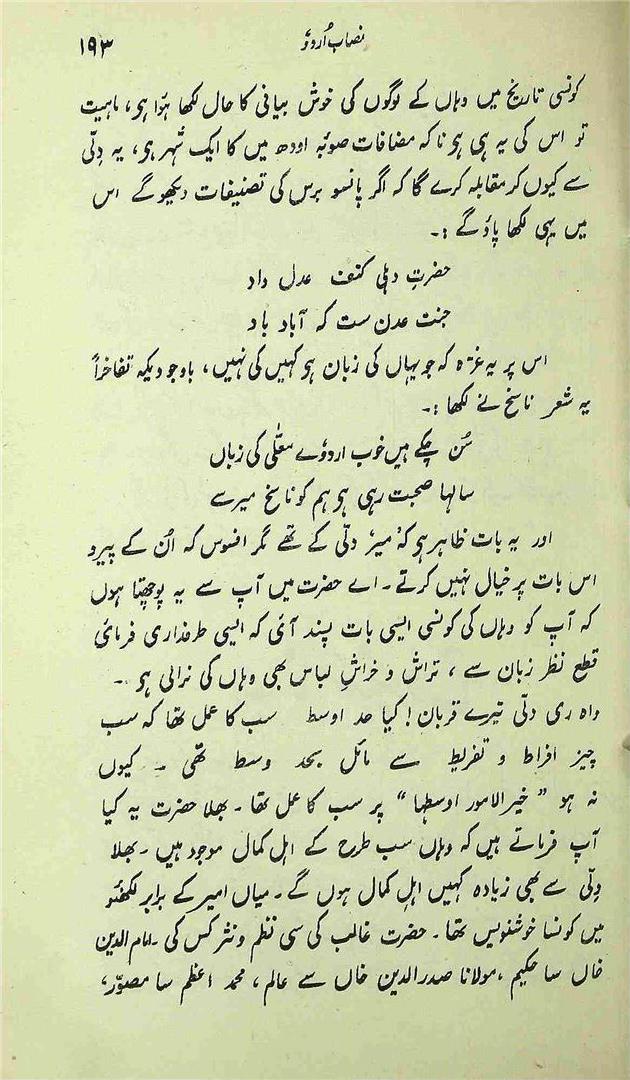 نصاب اُردو ۱۹۳
کونسی تاریخ میں وہاں کے لوگوں کی خوش بیانی کا حال لکھا ہؤا ہی، ماہیت
تو اس کی یہ ہی ہونا کہ مضافات صوبۂ اودھ میں کا ایک شہر ہی، یہ دِلّی
سے کیوں کر مقابلہ کرے گا کہ اگر پانسو برس کی تصنیفات دیکھو گے اس
میں یہی لکھا پاؤ گے :۔
حضرتِ دہلی کنفِ عدل و داد
جنت عدن ست کہ آباد باد
اس پر یہ غرّہ کہ جو یہاں کی زبان ہو کہیں کی نہیں، باوجودیکہ تفاخراً
یہ شعر ناسخ نے لکھا :۔
سُن چکے ہیں خوب اردوے معلّٰی کی زباں
سالہا صحبت رہی ہو ہم کو ناسخ میرسے
اور یہ بات ظاہر ہی کہ میر دلّی کے تھے مگر افسوس کہ اُن کے پیرو
اس بات پر خیال نہیں کرتے۔ اے حضرت میں آپ سے یہ پوچھتا ہوں
کہ آپ کو وہاں کی کونسی ایسی بات پسند آئی کہ ایسی طرفداری فرمائی
قطع نظر زبان سے، تراش و خراشِ لباس بھی وہاں کی نرالی ہو ۔
واہ ری دلّی تیرے قربان! کیا حد اوسط سب کا عمل تھا کہ سب
چیز افراط و تفریط سے مائل بحد وسط تھی ۔ کیوں
نہ ہو "خیر الامور اوسطہا" پر سب کا عمل تھا۔ بھلا حضرت یہ کیا
آپ فرماتے ہیں کہ وہاں سب طرح کے اہل کمال موجود ہیں۔ بھلا
دِلّی سے بھی زیادہ کہیں اہلِ کمال ہوں گے۔ میاں امیر کے برابر لکھنؤ
میں کونسا خوشنویس تھا۔ حضرت غالب کی سی نظم و نثر کس کی۔ امام الدین
خاں سا حکیم، مولانا صدر الدین خاں سے عالم، محمد اعظم سا مصوّر،